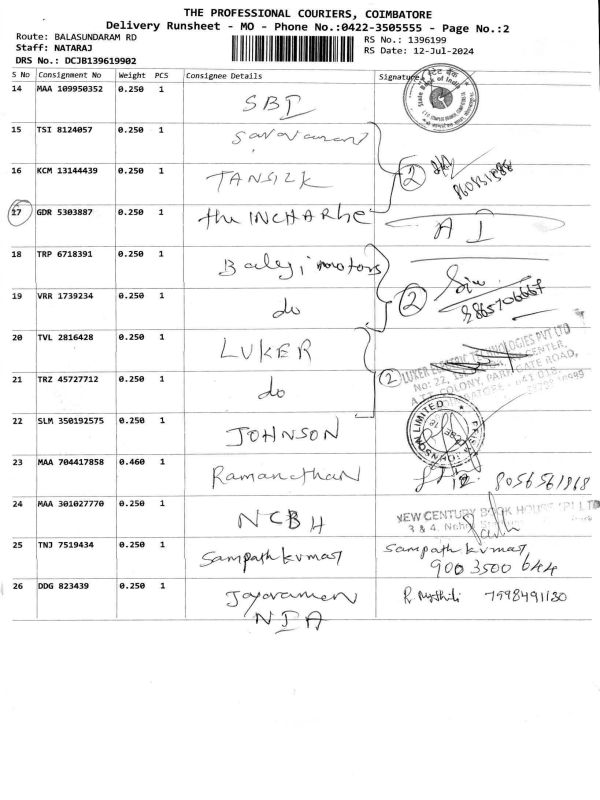 THE PROFESSIONAL COURIERS, COIMBATORE
Delivery Runsheet - MO - Phone No.:0422-3505555 - Page No.:2
Route: BALASUNDARAM RD
RS No.: 1396199
Staff: NATARAJ
RS Date: 12-Jul-2024
DRS No.: DCJB139619902
S No Consignment No Weight PCS Consignee Details Signature
14 MAA 109950352 0.250 1 SBI
State Bank of India
15 TSI 8124057 0.250 1 Saravanan
16 KCM 13144439 0.250 1 TANSILK
2
17 GDR 5303887 0.250 1 the INCHARGE
18 TRP 6718391 0.250 1 Balaji motors
19 VRR 1739234 0.250 1 do 2
9865706667
20 TVL 2816428 0.250 1 LUKER
21 TRZ 45727712 0.250 1 do 2
LUKER TECHNOLOGIES PVT LTD
No: 22, CENTER,
COLONY, GATE ROAD,
641 018
22 SLM 350192575 0.250 1 JOHNSON
JOHNSON LIMITED
23 MAA 704417858 0.460 1 Ramanathan 8056561868
24 MAA 301027770 0.250 1 NCBH
NEW CENTURY BOOK HOUSE (P) LTD
3 & 4, Nehru
25 TNJ 7519434 0.250 1 Sampath kumar Sampath kumar
900 3500 644
26 DDG 823439 0.250 1 Jayaramen R. Mythili 7598491130
NIA